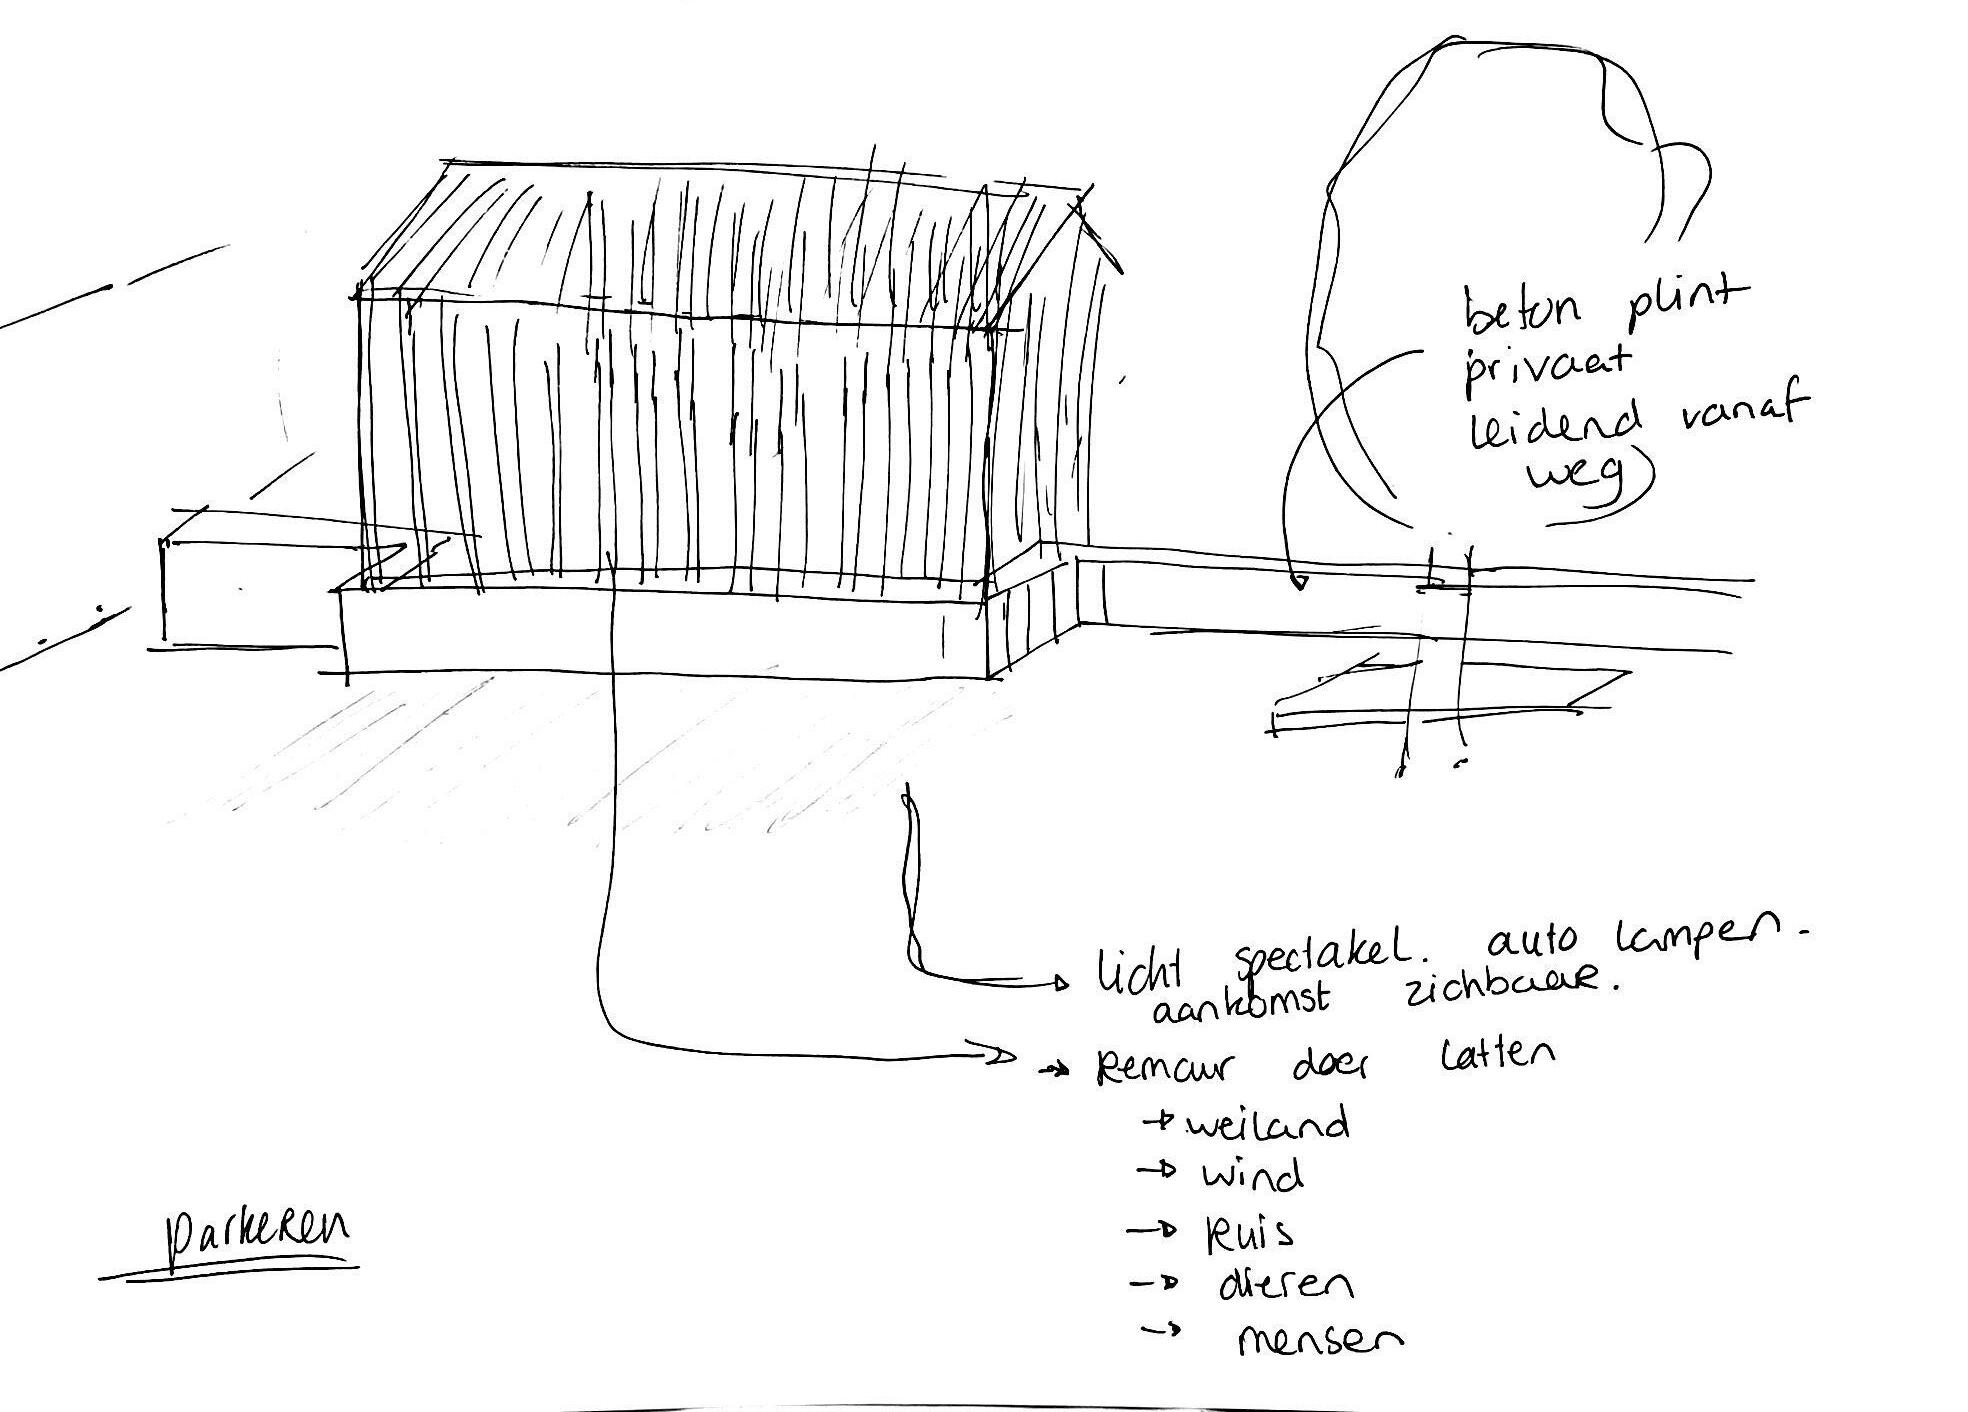 beton plint
privaat
leidend vanaf
weg
licht spectakel. auto lampen.
aankomst zichbaar.
→ door latten
→ weiland
→ wind
→ Ruis
→ dieren
→ mensen
parkeren